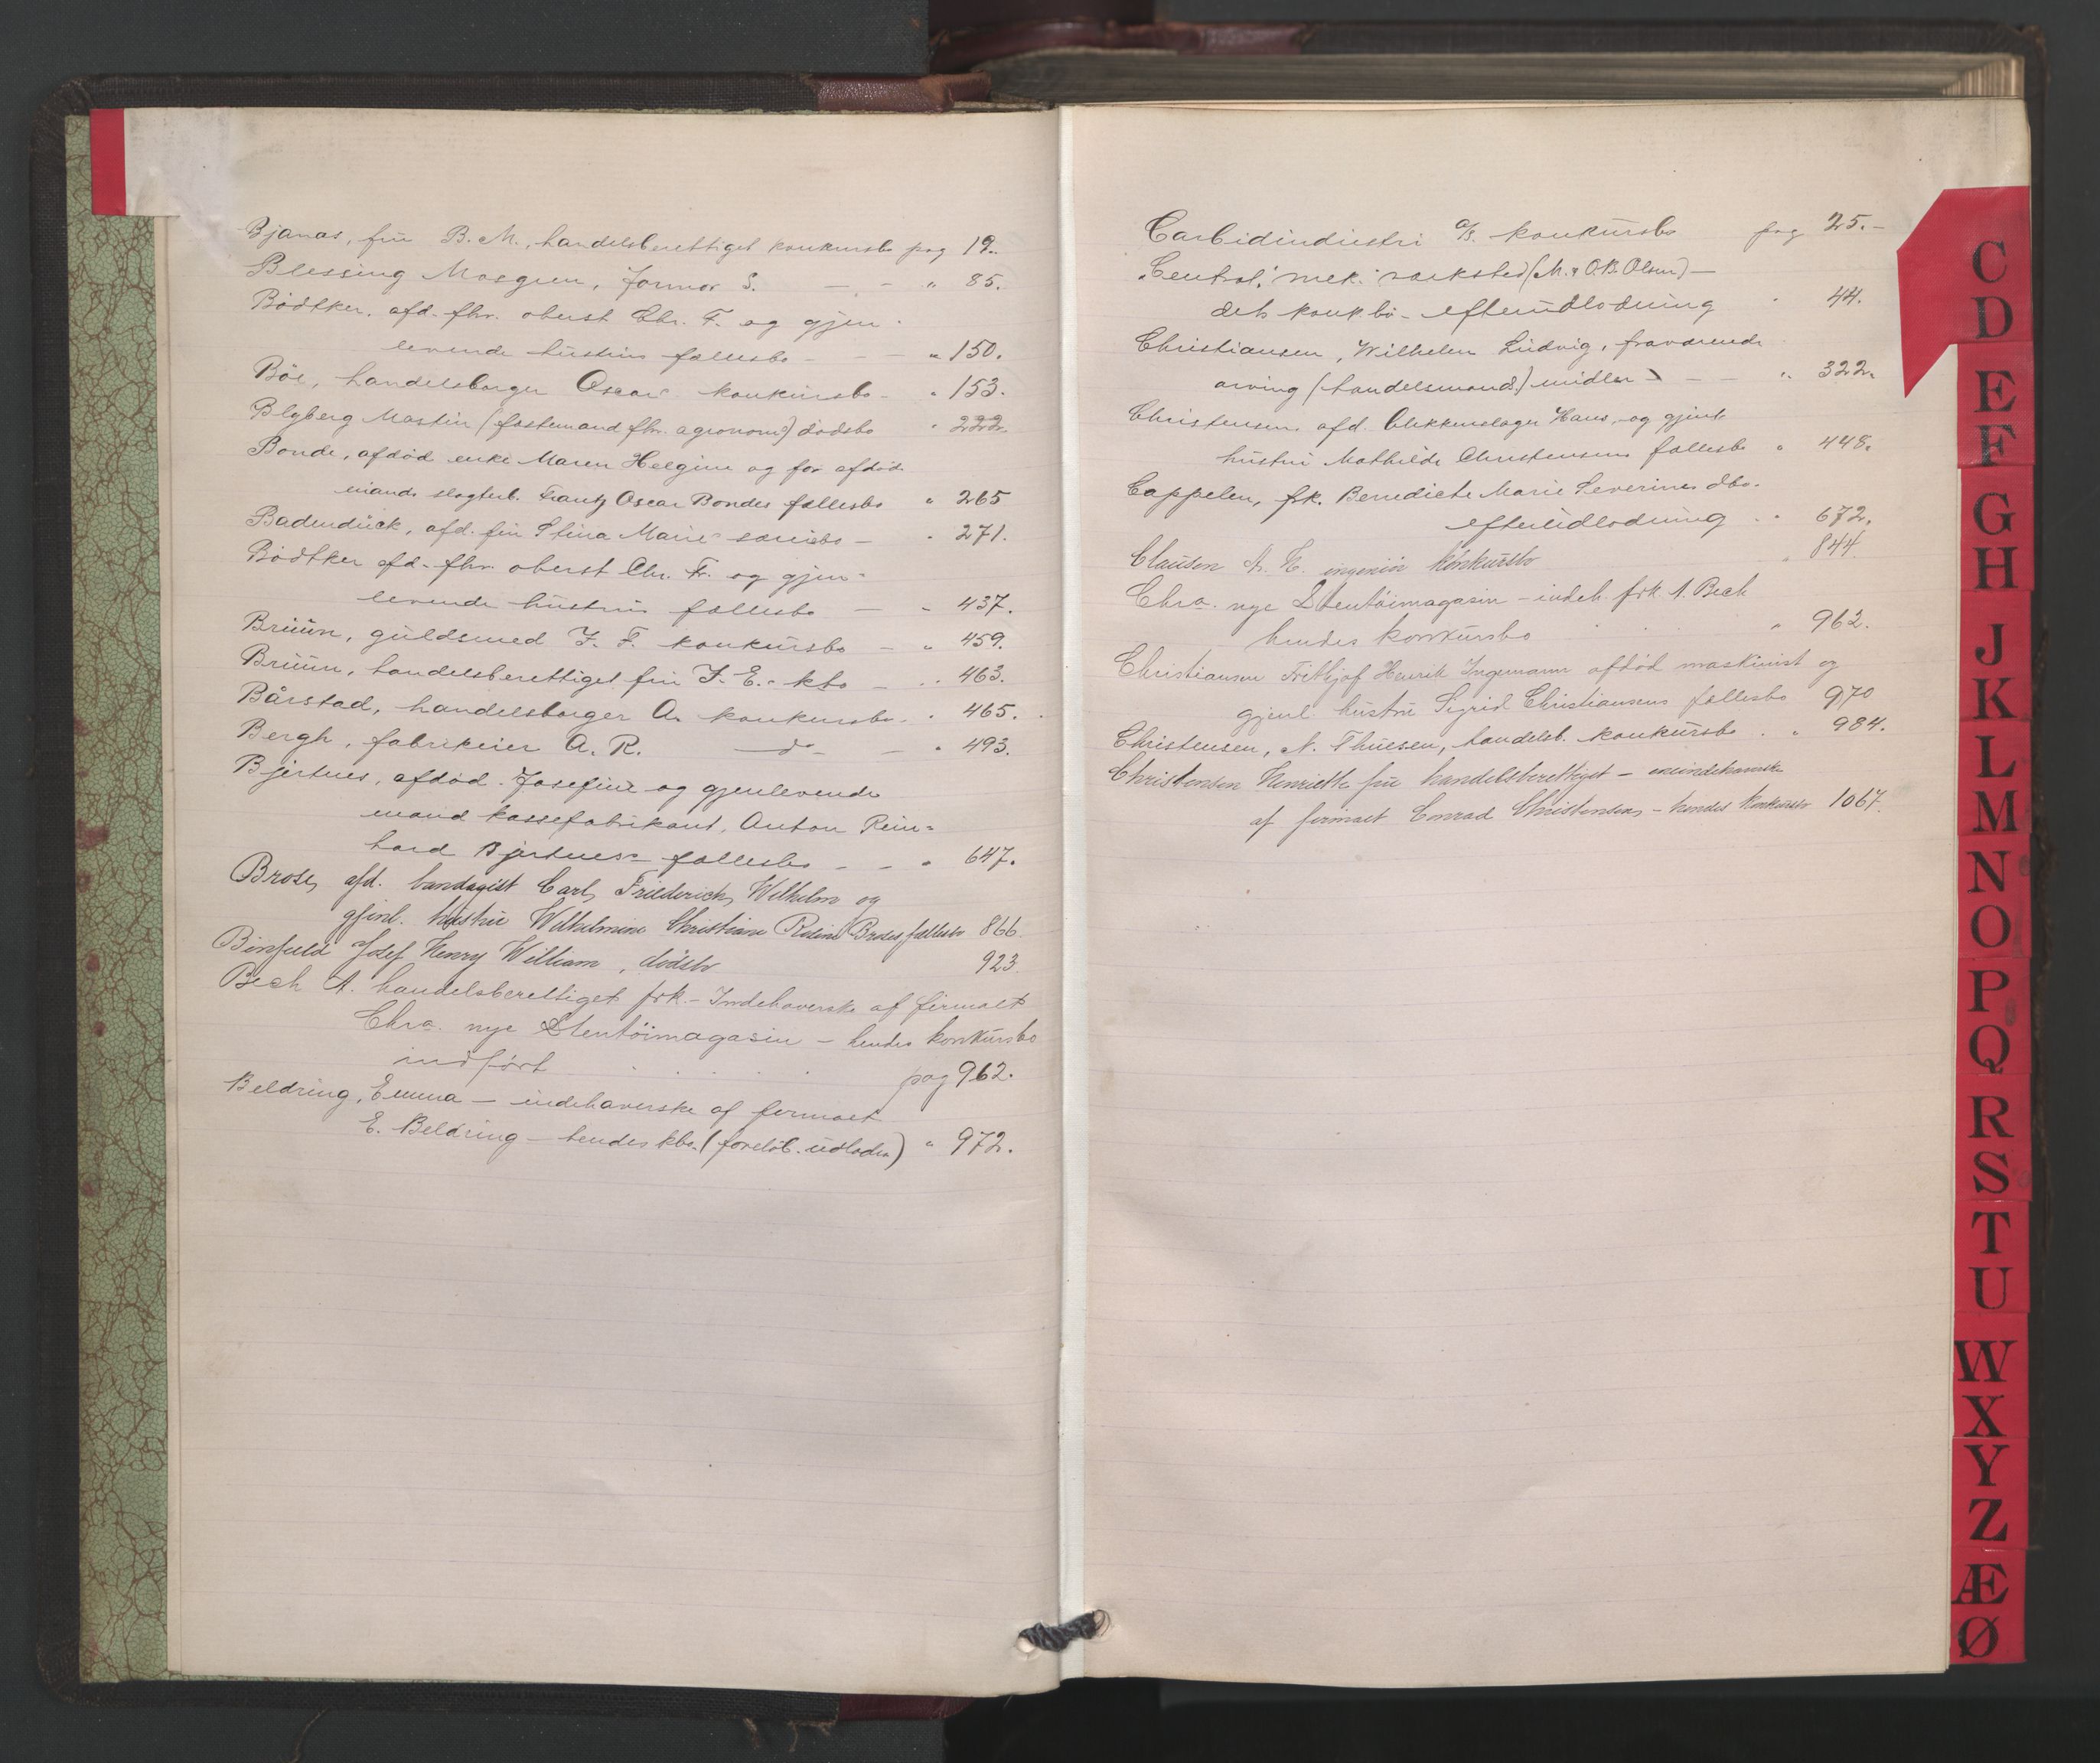 Bjanas, frü B. M., handelsberettiget konkursbo pag 19.
Blessing Mosgren, Jormor S. — - " 85.
Bödtker, afd. fhv. oberst Chr. F. og gjen-
levende hüstrüs fællesbo — — " 150.
Böe, handelsborger Oscar konkürsbo - " 153.
Blyberg Martin (fostemand fhv. agronom) dödsbo " 222
Bonde, afdöd enke Maren Helgine og för afdöd
mands slagterb. Frantz Oscar Bondes fællesbo " 265
Badendück, afd. frü Stina Marie særeiebo — " 271.
Bödtker afd. fhv. oberst Chr. F. og gjen-
levende hüstrüs fællesbo — " 437.
Brüün, güldsmed F. F. konkürsbo — " 459.
Brüün, handelsberettiget frü J. E. - kbo — " 463.
Bårstad, handelsborger A. konkursbo. " 465.
Bergh, fabrikeier A. R. — do — " 493.
Bjertnes, afdöd Josefine og gjenlevende
mand kassefabrikant, Anton Rein-
hard Bjertnes - fællesbo — — " 647.
Brose, afd. bandagist Carl Friederich Wilhelm og
gjenl. hüstrü Wilhelmine Christiane Rosine Broses fællesbo 866
Josef Henry William, dödsbo 923
Bech A. handelsberettiget frk. - Indehaverske af firmaet
Chra. nye Stentöimagasin - hendes konkürsbo
indfört . . . . pag 962.
Beldring, Emma — indehaverske af firmaet
E. Beldring — hendes kbo. (foreløb. üdlodn) " 972.
Carbidindüstri A/S. konkürsbo pag 25.-
"Central" mek. værksted (M. & O.B. Olsen) —
dets konk.bo - efterüdlodning " 44.
Christiansen, Wilhelm Lüdvig, fraværende
arving (handelsmand) midler — — " 322.
Christensen afd. Blikkenslager Hans, og gjenl.
hüstrü Mathilde Christensens fællesbo " 448.
Cappelen, frk. Benedicte Marie Severines dbo.
efterüdlodning " 672.
Claüsen A. H. ingeniör konkürsbo " 844.
Chra. nye Stentöimagasin - indeh. frk A. Bech
hendes konkürsbo " 962.
Christiansen Frithjof Henrik Ingemann afdöd maskinist og
gjenl. hüstrü Sigrid Christiansens fællesbo 970
Christensen, N. Thüesen, handelsb. konkürsbo . " 984.
Christensen Henriette frü handelsberettiget — eneindehaverske
af firmaet Conrad Christensen, - hendes konkürsbo 1067.
C
D
E
F
G
H
J
K
L
M
N
O
P
Q
R
S
T
U
W
X
Y
Z
Æ
Ø